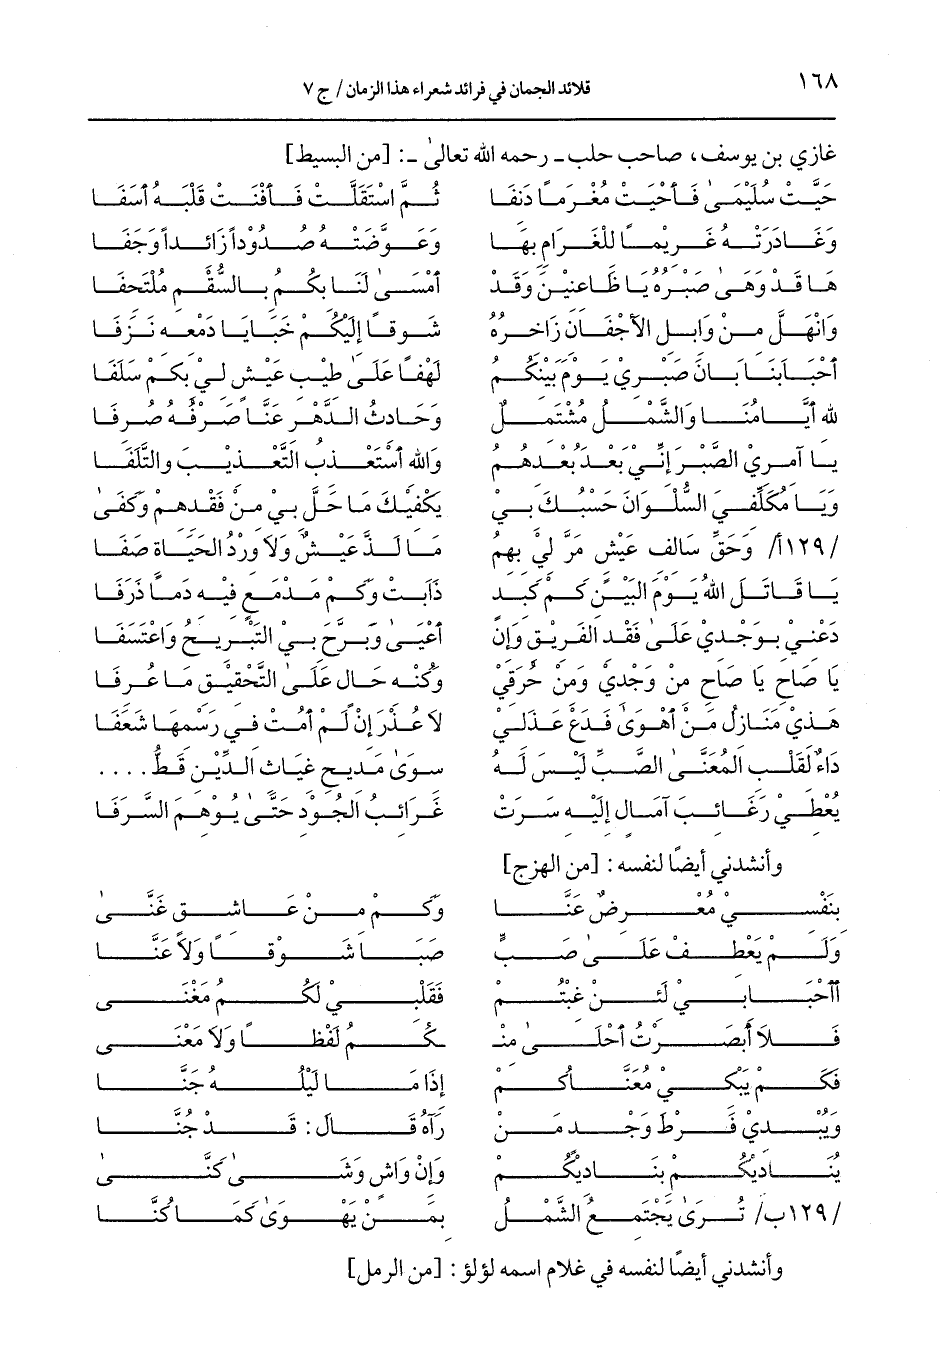 ١٦٨
قلائد الجمان في فرائد شعراء هذا الزمان / ج ٧
غازي بن يوسف، صاحب حلب - رحمه الله تعالىٰ -: [من البسيط]
حَيَّتْ سُلَيْمَىٰ فَأَحْيَتْ مُغْرَمًا دَنِفَا ثُمَّ اسْتَقَلَّتْ فَأَفْنَتْ قَلْبَهُ أَسَفَا
وَغَادَرَتْهُ غَرِيْمًا لِلْغَرَامِ بِهَا وَعَوَّضَتْهُ صُدُوْدًا زَائِدًا وَجَفَا
هَا قَدْ وَهَىٰ صَبْرُهُ يَا ظَاعِنِيْنَ وَقَدْ أَمْسَىٰ لَنَا بِكُمُ بِالسُّقْمِ مُلْتَحِفَا
وَانْهَلَّ مِنْ وَابِلِ الأَجْفَانِ زَاخِرُهُ شَوقًا إِلَيْكُمْ خَبَايَا دَمْعِهِ نَزَفَا
أَحْبَابَنَا بَانَ صَبْرِي يَوْمَ بَيْنِكُمِ لَهْفًا عَلَىٰ طِيْبِ عَيْشٍ لِيْ بِكُمْ سَلَفَا
لله أَيَّامُنَا وَالشَّمْلُ مُشْتَمِلٌ وَحَادِثُ الدَّهْرِ عَنَّا صَرْفُهُ صُرِفَا
يا آمري الصَّبْرَ إِنِّي بَعْدَ بُعْدِهُمِ وَالله أَسْتَعْذِبُ التَّعْذِيْبَ والتَّلَفَا
وَيَا مُكَلِّفِيَ السُّلْوَانَ حَسْبُكَ بِيْ يَكْفِيْكَ مَا حَلَّ بِيْ مِنْ فَقْدِهِمْ وَكَفَىٰ
/١٢٩أ/ وَحَقِّ سَالِفِ عَيْشٍ مَرَّ لِيْ بِهِمُ مَا لَذَّ عَيْشٌ وَلاَ وِرْدُ الحَيَاةِ صَفَا
يَا قَاتَلَ اللهُ يَوْمَ البَيْنِ كَمْ كَبِدٍ ذَابَتْ وَكَمْ مَدْمَعٍ فِيْهِ دَمًا ذَرَفَا
دَعْنِي بِوَجْدِي عَلَىٰ فَقْدِ الفَرِيْقِ وَإِن أَعْيَىٰ وَبَرَّحَ بِيْ التَّبْرِيْحُ وَاعْتَسَفَا
يَا صَاحِ يَا صَاحِ مِن وَجْدِي وَمِن حُرَقِي وَكُنْهِ حَالٍ عَلَىٰ التَّحْقِيْقِ مَا عُرِفَا
هَذِيْ مَنَازِلُ مَنْ أَهْوَىٰ فَدَعْ عَذَلِيْ لاَ عُذْرَ إِنْ لَمْ أَمُتْ فِي رَسْمِهَا شَغَفَا
دَاءٌ لِقَلْبِ المُعَنَّىٰ الصَّبِّ لَيْسَ لَهُ سِوَىٰ مَدِيْحِ غِيَاثِ الدِّيْنِ قَطُّ . . . .
يُعْطِيْ رَغَائِبَ آمَالٍ إِلَيْهِ سَرَتْ غَرَائِبُ الجُوْدِ حَتَّىٰ يُوْهِمَ السَّرَفَا
وأنشدني أيضًا لنفسه: [من الهزج]
بِنَفْسِيْ مُعْرِضٌ عَنَّا وَكَمْ مِنْ عَاشِقٍ غَنَّىٰ
وَلَمْ يَعْطِفْ عَلَىٰ صَبٍّ صَبَا شَوْقًا وَلاَ عَنَّا
أَأَحْبَابِيْ لَئِنْ غِبْتُمْ فَقَلْبِيْ لَكُمُ مَغْنَى
فَلاَ أَبْصَرْتُ أَحْلَىٰ مِنْـ ـكُمُ لَفْظًا وَلاَ مَعْنَى
فَكَمْ يَبْكِيْ مُعَنَّاكُمْ إِذَا مَا لَيْلُهُ جَنَّا
وَيُبْدِيْ فَرْطَ وَجْدٍ مَنْ رَآهُ قَالَ: قَدْ جُنَّا
يُنَادِيْكُمْ بِنَادِيْكُمْ وَإِنْ وَاشٍ وَشَىٰ كَنَّىٰ
/١٢٩ب/ تُرَىٰ يَجْتَمِعُ الشَّمْلُ بِمَنْ يَهْوَىٰ كَمَا كُنَّا
وأنشدني أيضًا لنفسه في غلام اسمه لؤلؤ: [من الرمل]